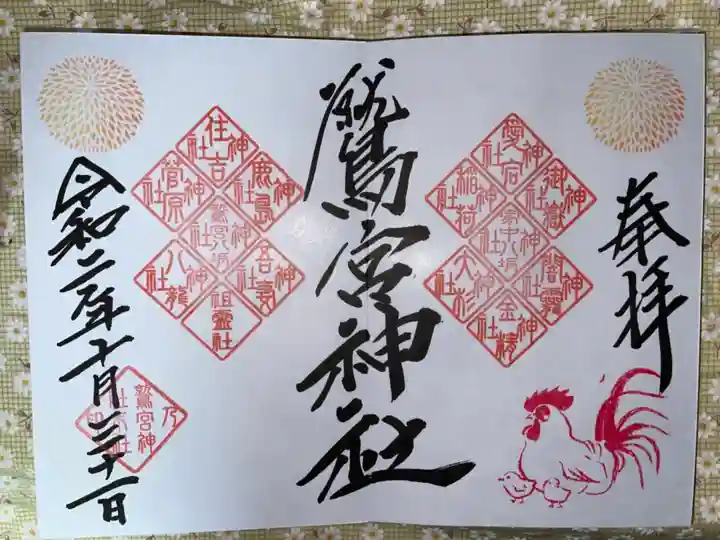 奉拝
愛宕神社
御嶽神社
稲荷神社
大杉神社
金精神社
鷲宮神社
住吉神社
鹿島神社
菅原神社
鷲宮八坂神社
吾妻神社
八龍神社
祖霊社
令和二年十月三十一日
鷲宮神社